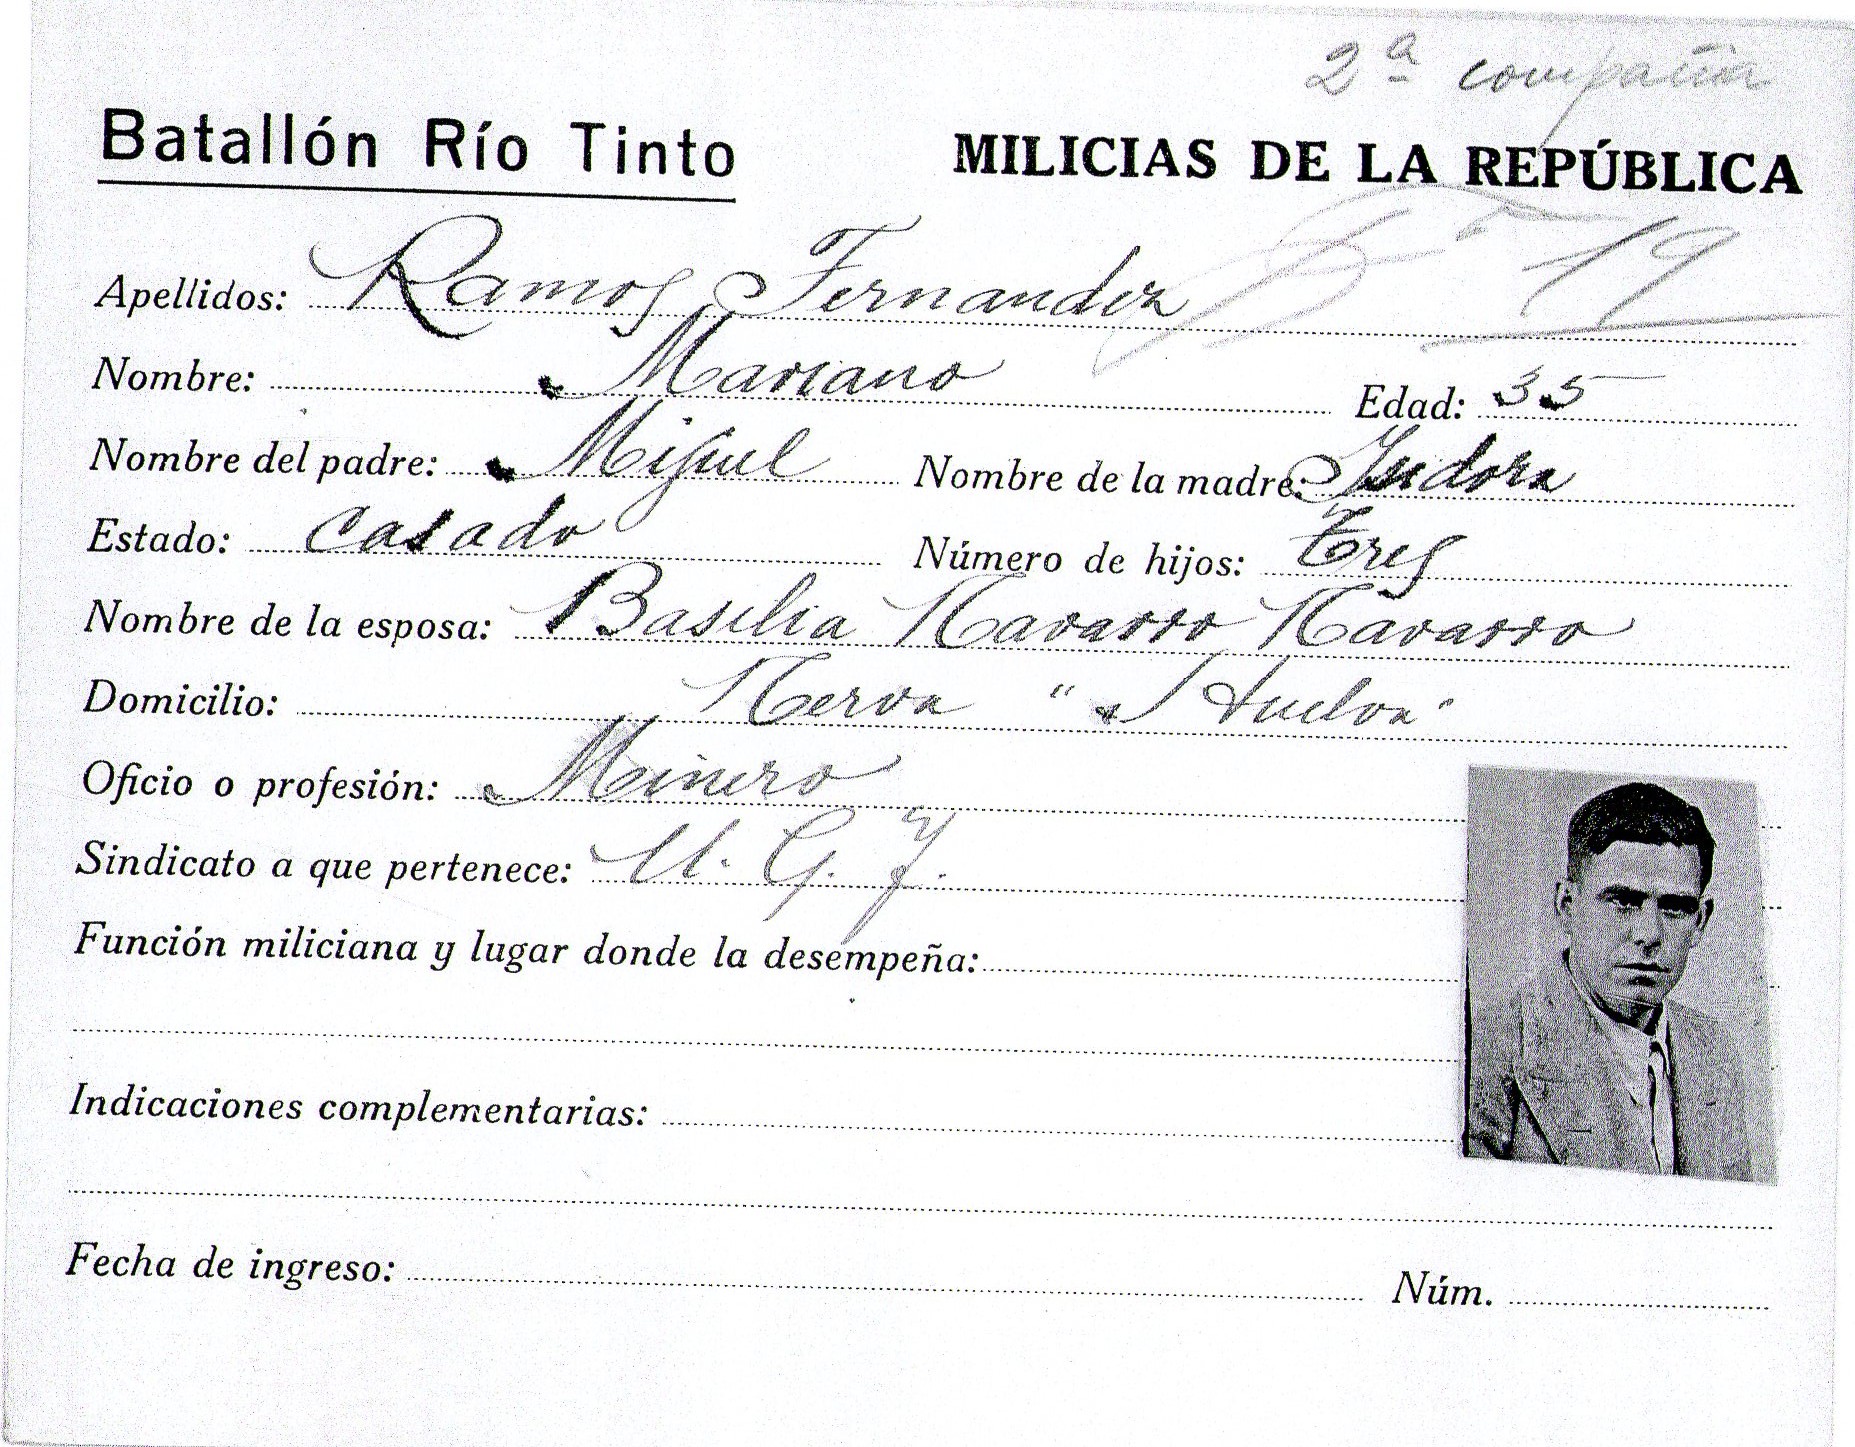 2ª compañia
Batallón Río Tinto MILICIAS DE LA REPÚBLICA
19
Apellidos: Ramos Fernandez
Nombre: Mariano Edad: 35
Nombre del padre: Miguel Nombre de la madre: Isidora
Estado: Casado Número de hijos: Tres
Nombre de la esposa: Basilia Navarro Navarro
Domicilio: Nerva "Huelva"
Oficio o profesión: Minero
Sindicato a que pertenece: U. G. T.
Función miliciana y lugar donde la desempeña:
Indicaciones complementarias:
Fecha de ingreso: Núm.